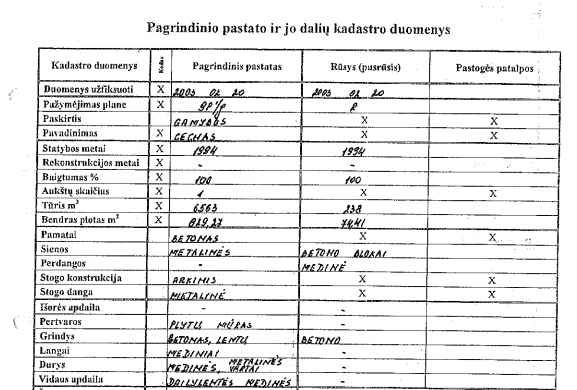 Pagrindinio pastato ir jo dalių kadastro duomenys
Kadastro duomenys Kodas Pagrindinis pastatas Rūsys (pusrūsis) Pastogės patalpos
Duomenys užfiksuoti X 2003 02 20 2003 02 20
Pažymėjimas plane X P
Paskirtis GAMYBOS X X
Pavadinimas X CECHAS X X
Statybos metai X 1994 1994
Rekonstrukcijos metai X - -
Baigtumas % X 100 100
Aukštų skaičius X 1 X X
Tūris m³ X 6563 238
Bendras plotas m² X 829,27 74,41
Pamatai BETONAS X X
Sienos METALINĖS BETONO BLOKAI
Perdangos - MEDINĖ
Stogo konstrukcija ARKINIS X X
Stogo danga METALINĖ X X
Išorės apdaila - -
Pertvaros PLYTŲ MŪRAS -
Grindys BETONAS, LENTŲ BETONO
Langai MEDINIAI -
Durys MEDINĖS, METALINĖS VARTAI -
Vidaus apdaila DAILYLENTĖS MEDINĖS -